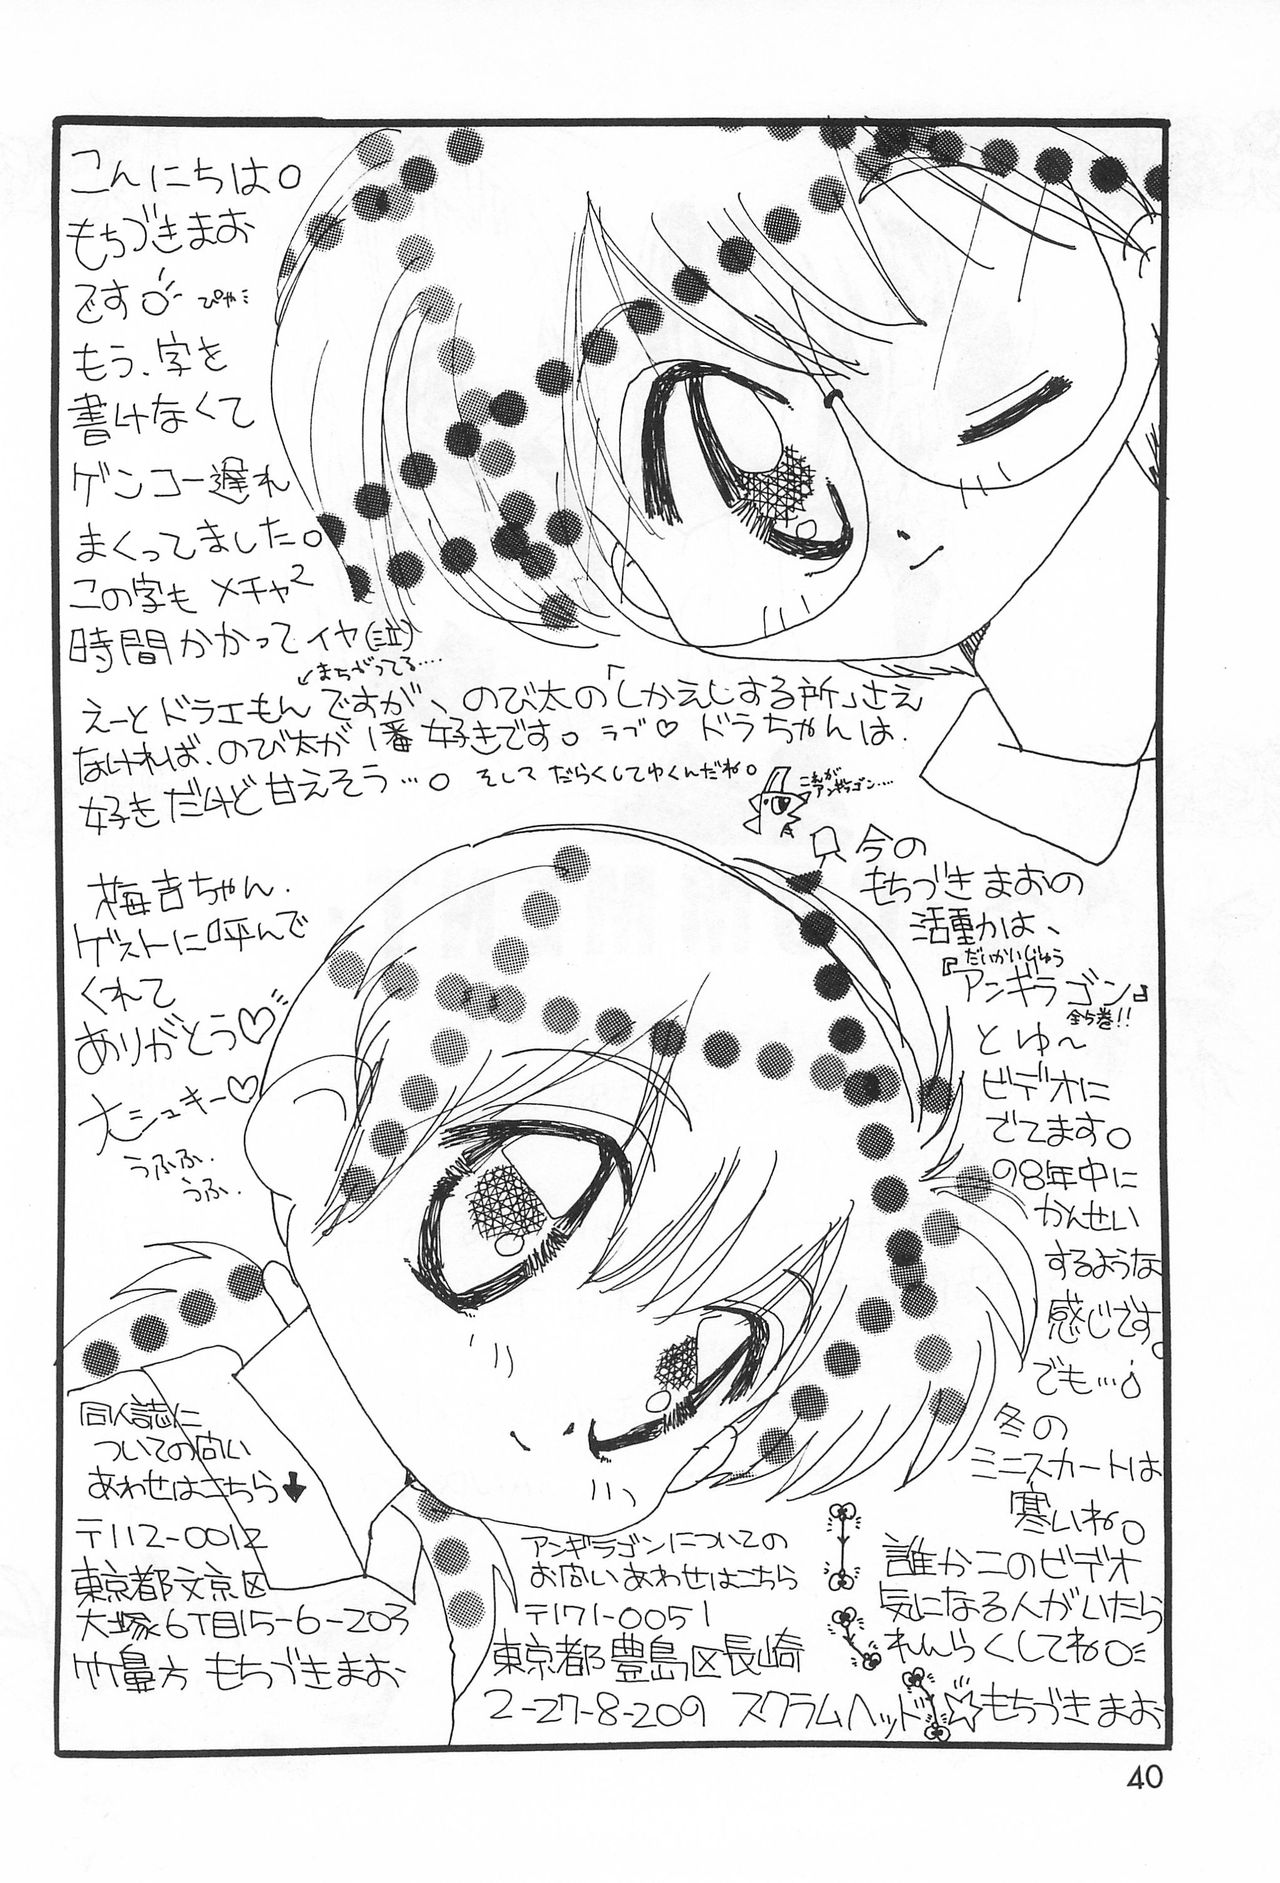 こんにちは。
もちづきまお
です ぴゃ
もう、字を
書けなくて
ゲンコー遅れ
まくってました。
この字も メチャ2
時間かかってイヤ(泣)
↙まちがってる‥‥
えーとドラエもんですが、のび太の「しかえしする所」さえ
なければ、のび太が1番好きです。ラブ♡ ドラちゃんは、
好きだけど甘えそう…。そして だらくしてゆくんだね。
これが
アンギラゴン‥‥
梅吉ちゃん、
ゲストに呼んで
くれて
ありがとう♡
大シュキー♡
うふふ、
うふ、
今の
もちづきまおの
活動かは、
だいかいじゅう
『アンギラゴン』
全5巻!!
とゆ〜
ビデオに
でてます。
98年中に
かんせい
するような
感じです。
でも…
冬の
ミニスカートは
寒いね。
誰かこのビデオ
気になる人がいたら
れんらくしてね
☆もちづきまお
同人誌に
ついての問い
あわせはこちら↓
〒112-0012
東京都文京区
大塚6丁目15-6-203
方 もちづきまお
アンギラゴンについての
お問いあわせはこちら
〒171-0051
東京都豊島区長崎
2-27-8-209 スクラムヘッド
40